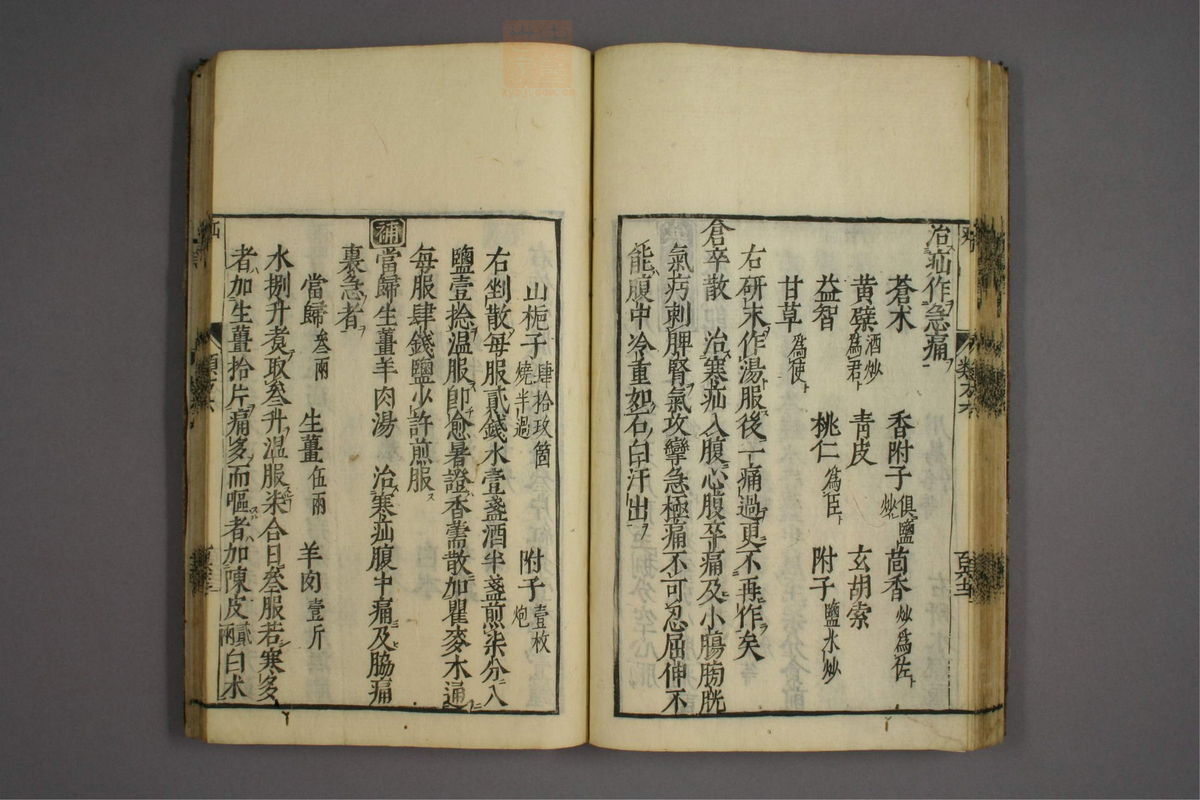 治疝作急痛
蒼朮 香附子俱鹽炒 茴香炒爲佐
黄蘗酒炒爲君 青皮 玄胡索
益智 桃仁爲臣 附子鹽水炒
甘草爲使
右研末作湯服後一痛過更不再作矣
倉卒散 治寒疝入腹心腹卒痛及小膓膀胱
氣疞刺脾腎氣攻攣急極痛不可忍屈伸不
能腹中冷重如石白汗出
山梔子肆拾玖箇燒半過 附子壹枚炮
右剉散每服貳錢水壹盞酒半盞煎柒分入
鹽壹捻温服卽愈暑證香薷散加瞿麥木通
每服肆錢鹽少許煎服
補 當歸生薑羊肉湯 治寒疝腹中痛及脇痛
裏急者
當歸叁兩 生薑伍兩 羊肉壹斤
水捌升煮取叁升温服柒合日叁服若寒多
者加生薑拾片痛多而嘔者加陳皮貳兩白朮